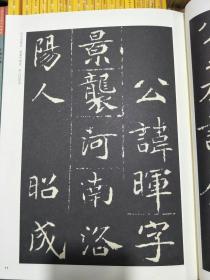 公諱暉字
景襲河南洛
陽人昭成